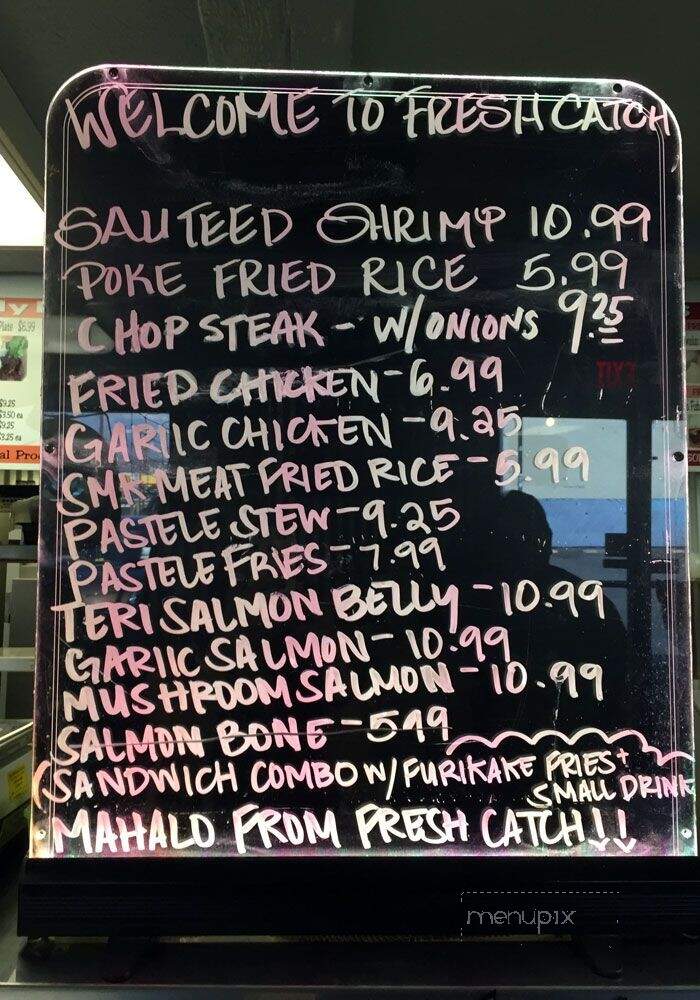 WELCOME TO FRESH CATCH
SAUTEED SHRIMP 10.99
POKE FRIED RICE 5.99
CHOP STEAK - W/ONIONS 9.25
FRIED CHICKEN - 6.99
GARLIC CHICKEN - 9.25
SMK MEAT FRIED RICE - 5.99
PASTELE STEW - 9.25
PASTELE FRIES - 7.99
TERI SALMON BELLY - 10.99
GARLIC SALMON - 10.99
MUSHROOM SALMON - 10.99
SALMON BONE - 5.99
(SANDWICH COMBO W/ FURIKAKE FRIES +
SMALL DRINK
MAHALO FROM FRESH CATCH!!
Plate $6.99
$9.25
$3.50 ea
$9.25
$3.25 ea
al Pro
menupix